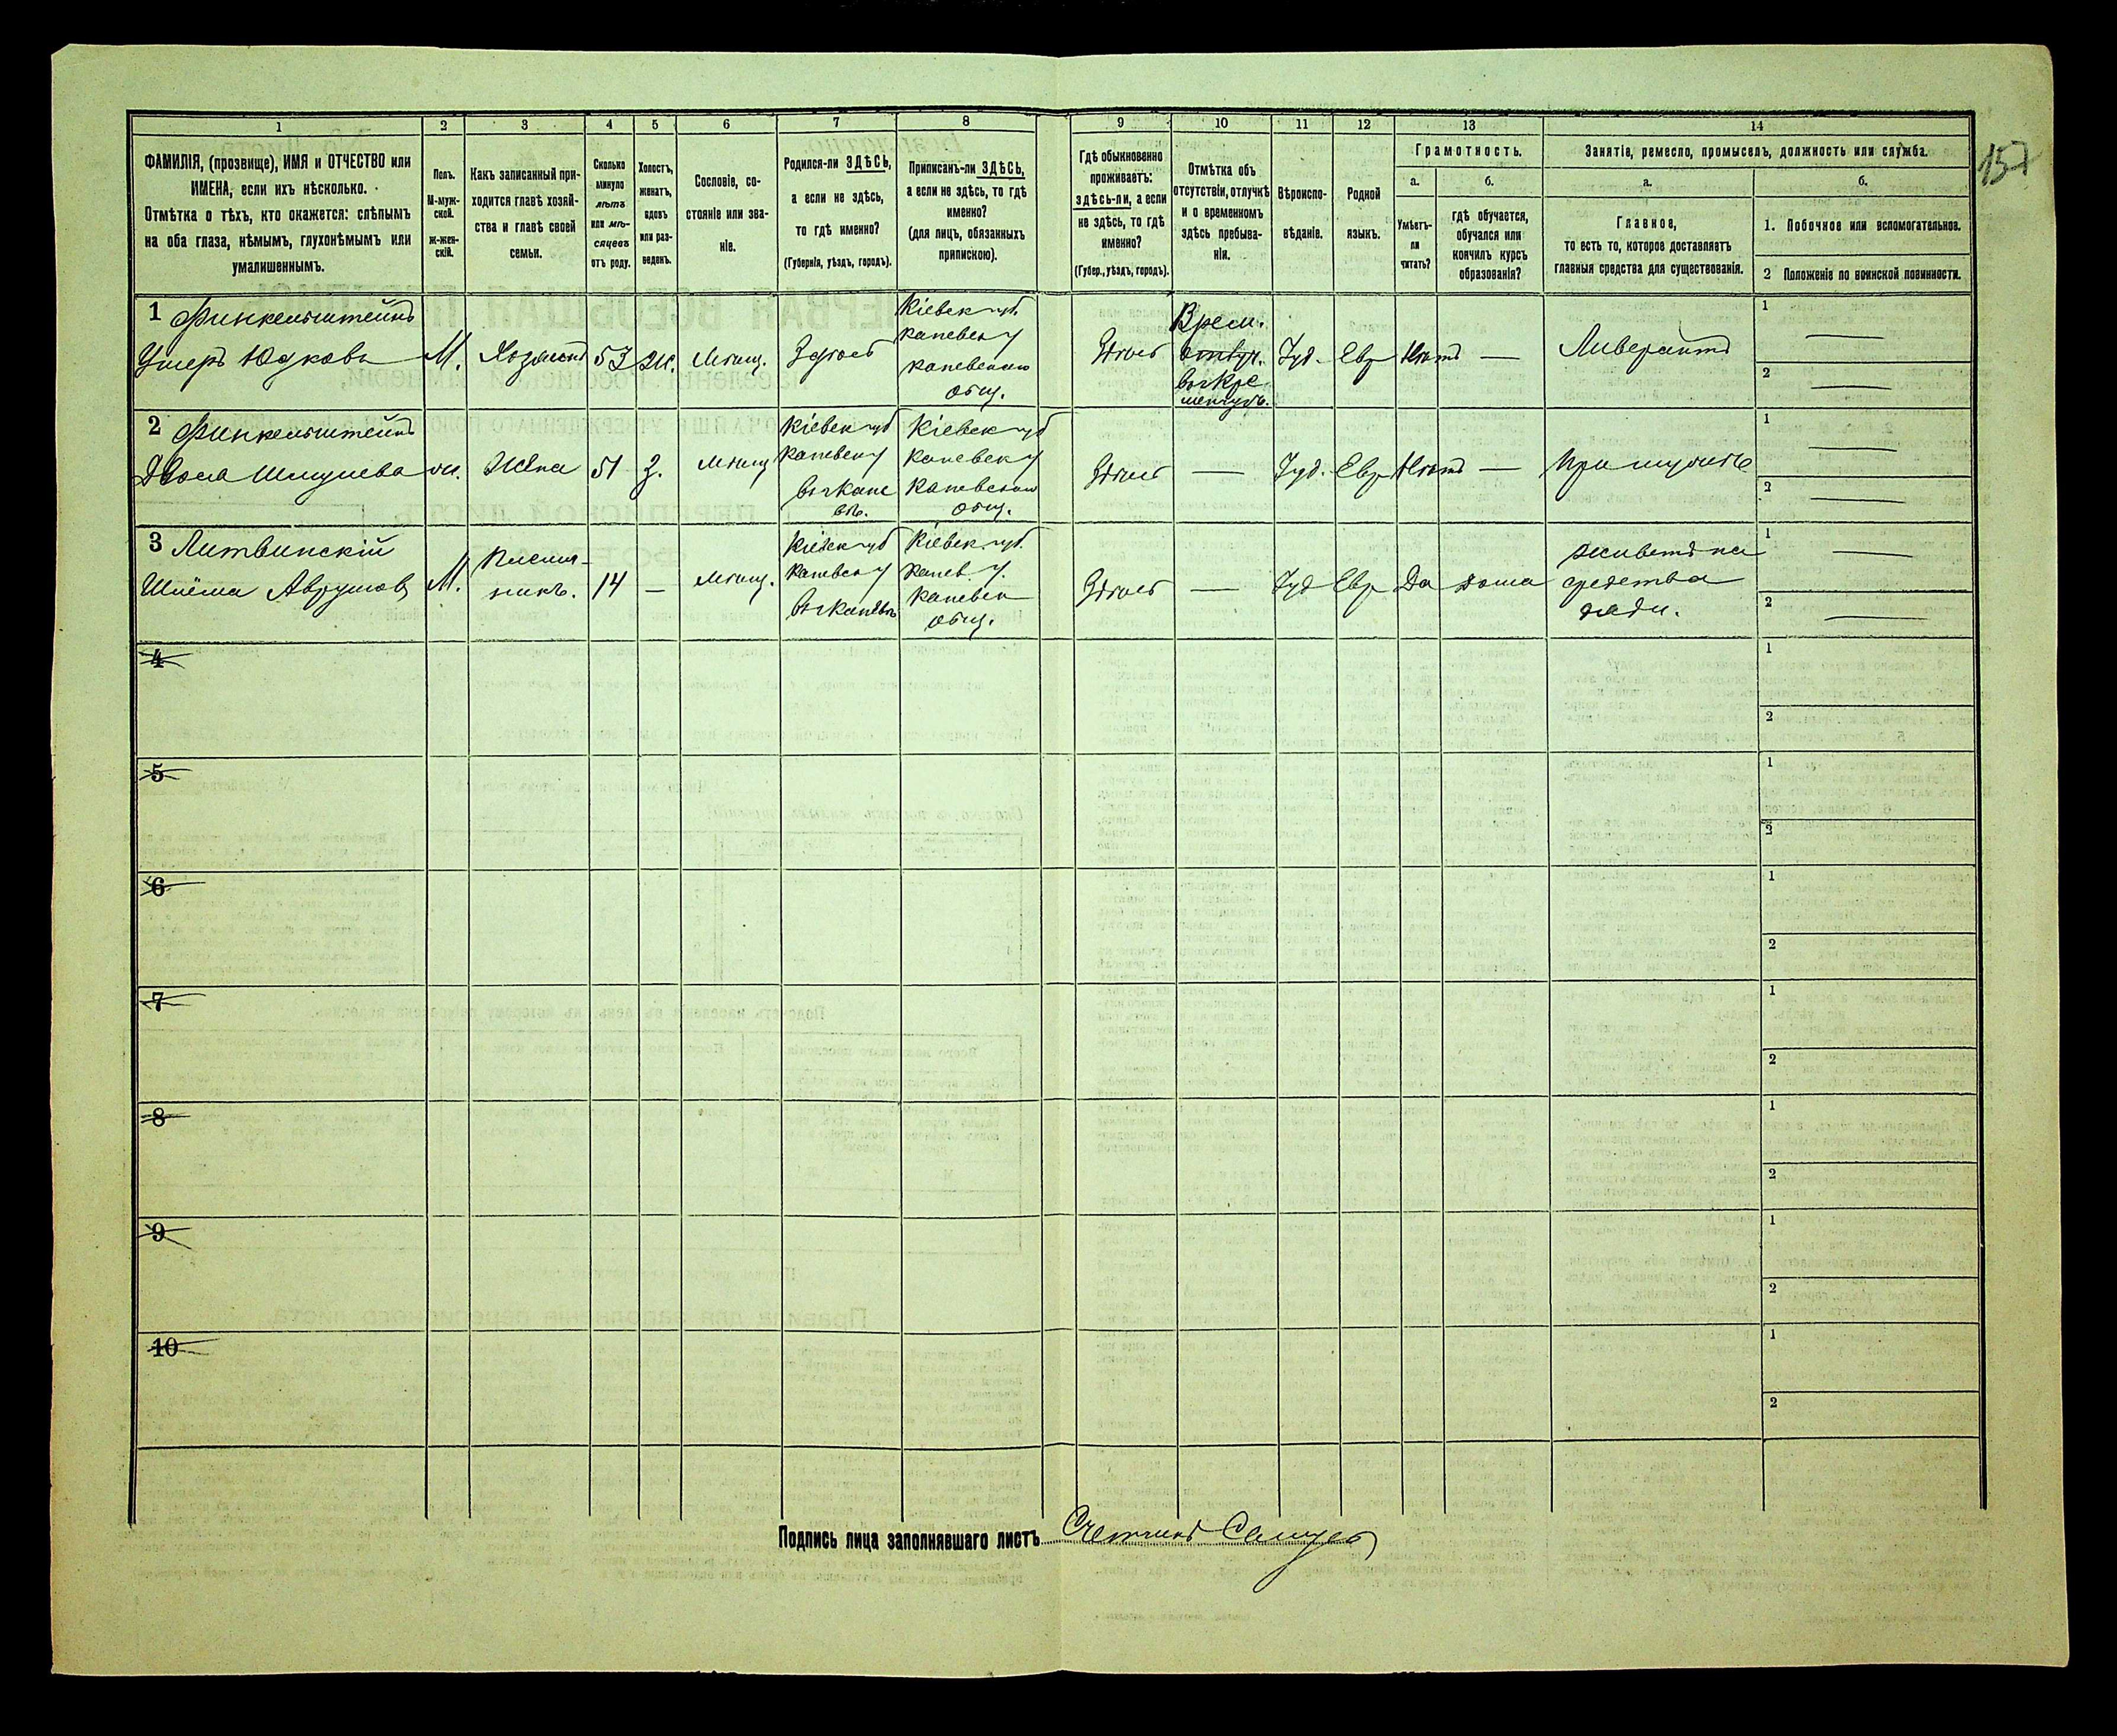 157
1 2 3 4 5 6 7 8 9 10 11 12 13 14
ФАМИЛІЯ, (прозвище), ИМЯ и ОТЧЕСТВО или
ИМЕНА, если ихъ нѣсколько.
Отмѣтка о тѣхъ, кто окажется: слѣпымъ
на оба глаза, нѣмымъ, глухонѣмымъ или
умалишеннымъ.
Полъ.
М-муж-
ской.
Ж-жен-
скій.
Какъ записанный при-
ходится главѣ хозяй-
ства и главѣ своей
семьи.
Сколько
минуло
лѣтъ
или мѣ-
сяцевъ
отъ роду.
Холостъ,
женатъ,
вдовъ
или раз-
веденъ.
Сословіе, со-
стояніе или зва-
ніе.
Родился-ли ЗДѢСЬ,
а если не здѣсь,
то гдѣ именно?
(Губернія, уѣздъ, городъ).
Приписанъ-ли ЗДѢСЬ,
а если не здѣсь, то гдѣ
именно?
(для лицъ, обязанныхъ
припискою).
Гдѣ обыкновенно
проживаетъ:
здѣсь-ли, а если
не здѣсь, то гдѣ
именно?
(Губер., уѣздъ, городъ).
Отмѣтка объ
отсутствіи, отлучкѣ
и о временномъ
здѣсь пребыва-
ніи.
Вѣроиспо-
вѣданіе.
Родной
языкъ.
Грамотность.
а.
Умѣетъ-
ли
читать?
б.
гдѣ обучается,
обучался или
кончилъ курсъ
образованія?
Занятіе, ремесло, промыселъ, должность или служба.
а.
Главное,
то есть то, которое доставляетъ
главныя средства для существованія.
б.
1. Побочное или вспомогательное.
2 Положеніе по воинской повинности.
1 Финкельштейнъ
Ушеръ Юдковъ
М.
Хозяинъ
53
Ж.
Мѣщ.
Здѣсь
Кіевск губ
Каневск у
Каневскаго
общ.
Здѣсь
Врем.
отлуч.
въ г Кре
менчугъ.
Іуд.
Евр
Нѣтъ
—
Ливерантъ
1 —
2 —
2 Финкельштейнъ
Двося Шмулева
ж.
Жена
51
З.
Мѣщ
Кіевск губ
Каневск у
въ г Кане
вѣ.
Кіевск губ
Каневск у
Каневскаго
общ.
Здѣсь
—
Іуд.
Евр
Нѣтъ
—
При мужѣ
1 —
2 —
3 Литвинскій
Шлёма Аврумов
М.
Племян-
никъ.
14
—
Мѣщ.
Кіевск губ
Каневск у
въ г Каневѣ
Кіевск. губ.
Канев. у.
Каневск
общ.
Здѣсь
—
Іуд
Евр
Да
дома
живетъ на
средства
дяди.
1 —
2 —
4
1
2
5
1
2
6
1
2
7
1
2
8
1
2
9
1
2
10
1
2
Подпись лица заполнявшаго листъ Счетчикъ